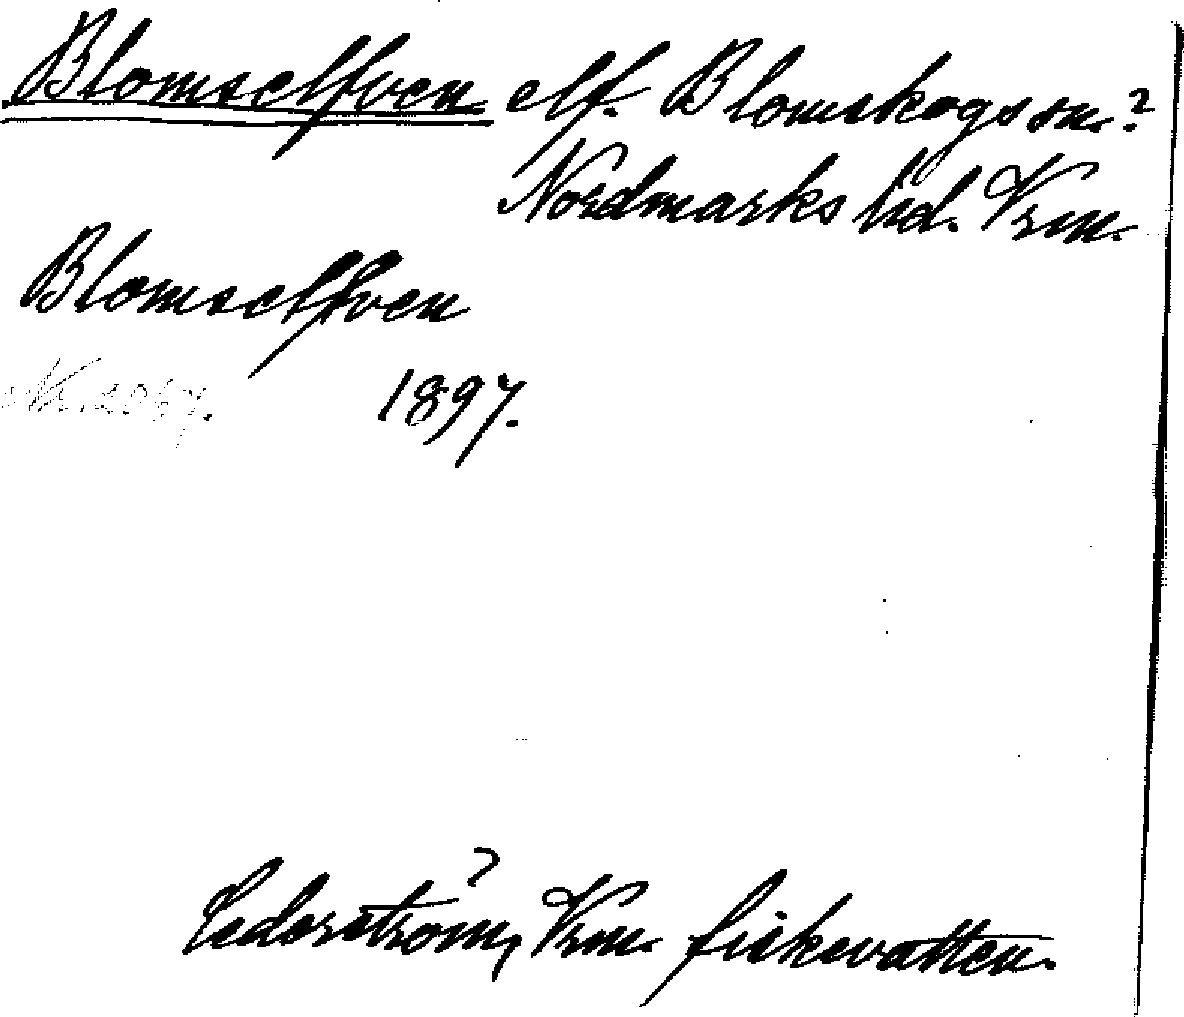 Blomselfven elf. Blomskogs sn.?
Nordmarks hd. Vrm.
Blomselfven
1897.
Cederström, Vrm. fiskevatten.